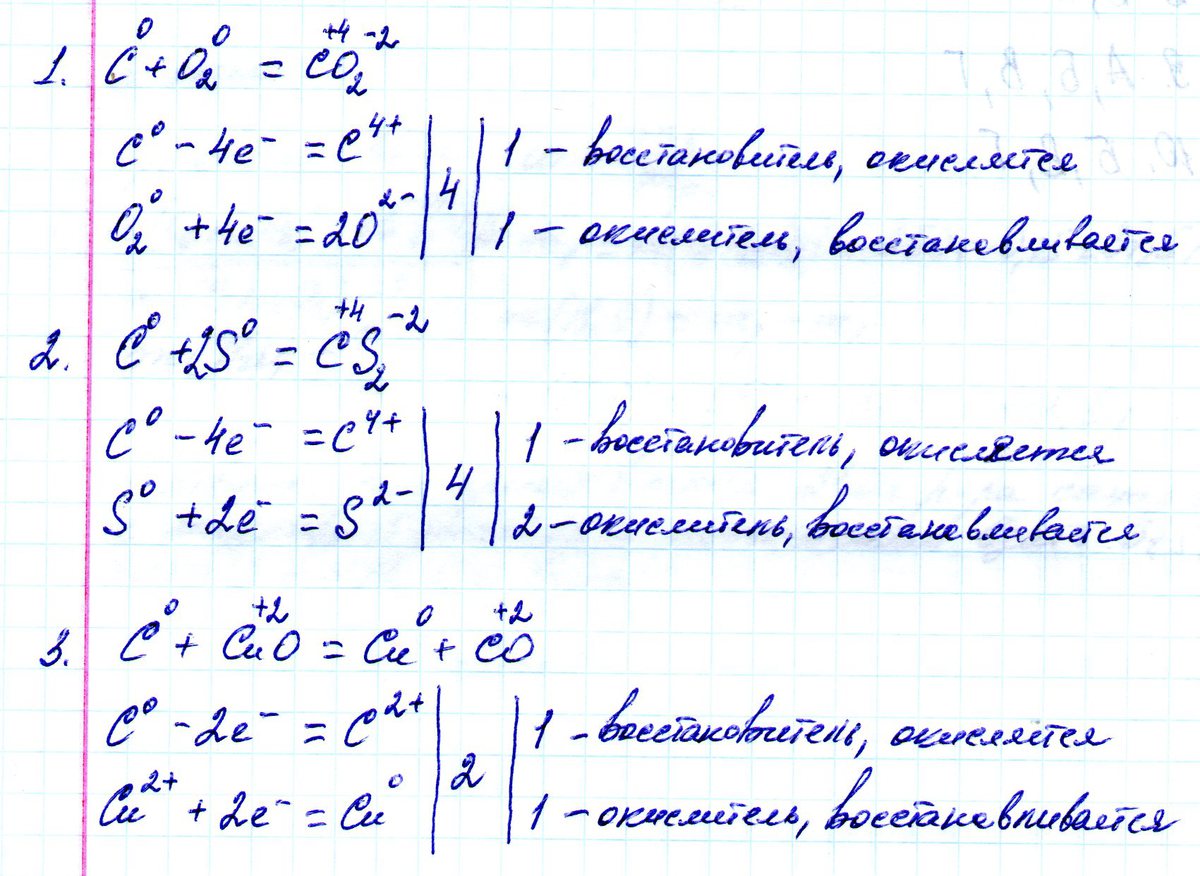 1. C⁰ + O₂⁰ = C⁺⁴O₂⁻²
C⁰ - 4e⁻ = C⁴⁺ | 4 | 1 - восстановитель, окисляется
O₂⁰ + 4e⁻ = 2O²⁻ | | 1 - окислитель, восстанавливается
2. C⁰ + 2S⁰ = C⁺⁴S₂⁻²
C⁰ - 4e⁻ = C⁴⁺ | 4 | 1 - восстановитель, окисляется
S⁰ + 2e⁻ = S²⁻ | | 2 - окислитель, восстанавливается
3. C⁰ + Cu⁺²O = Cu⁰ + C⁺²O
C⁰ - 2e⁻ = C²⁺ | 2 | 1 - восстановитель, окисляется
Cu²⁺ + 2e⁻ = Cu⁰ | | 1 - окислитель, восстанавливается